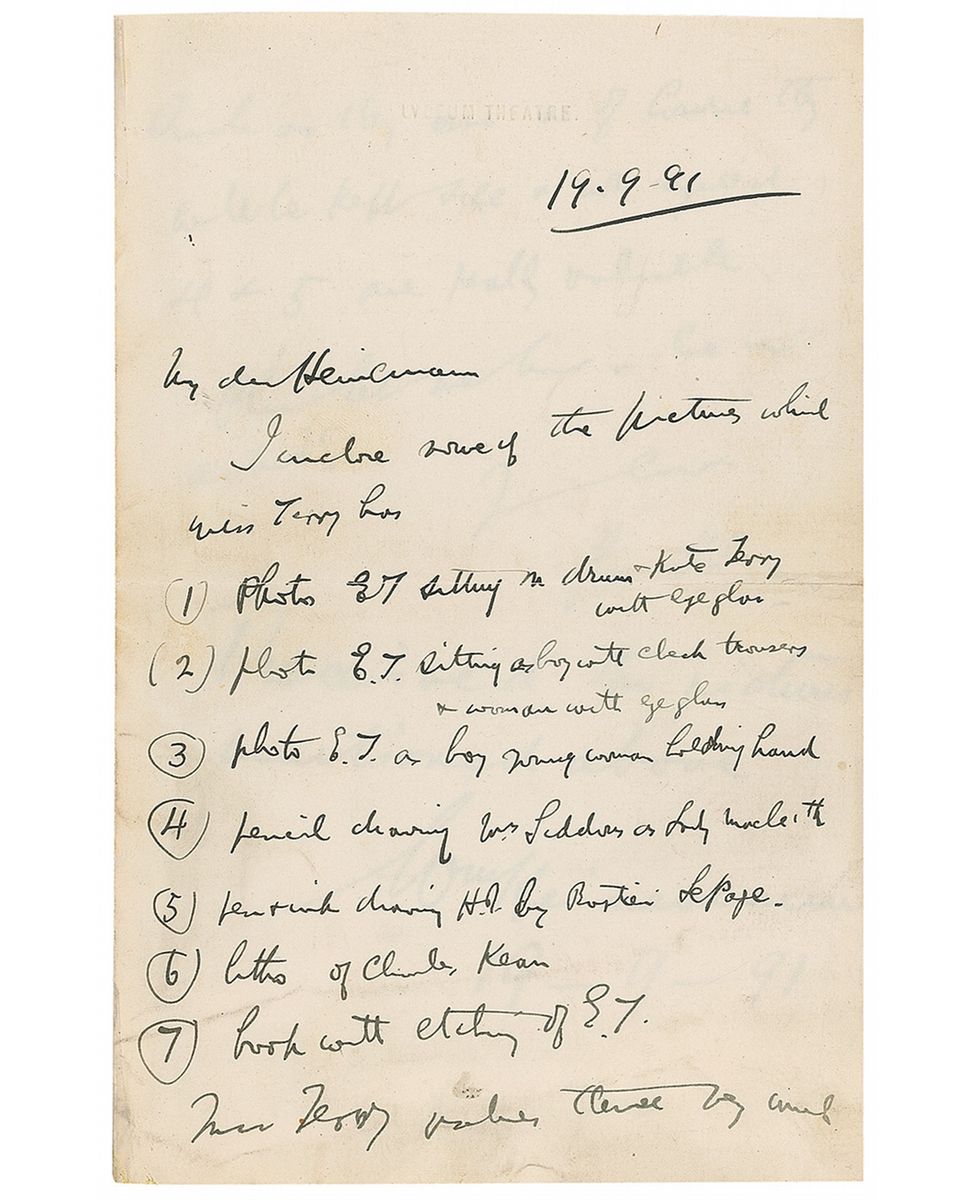 LYCEUM THEATRE.
19.9.91
My dear Heinemann
I enclose some of the pictures which
Miss Terry has
(1) Photo ET sitting on drum & Kate Terry
with eyeglass
(2) photo E.T. sitting as boy with check trousers
& woman with eyeglass
(3) photo E.T. as boy young woman holding hand
(4) pencil drawing Mrs Siddons as Lady Macbeth
(5) pen & ink drawing H.I. by Bastien LePage.
(6) litho of Charles Kean
(7) book with etching of E.T.
Miss Terry values these very much